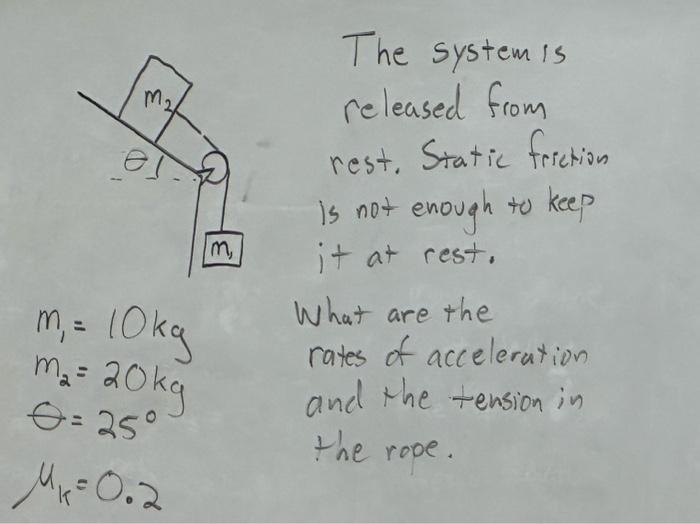 The system is
released from
rest. Static friction
is not enough to keep
it at rest.
What are the
rates of acceleration
and the tension in
the rope.
m₂
θ
m₁
m₁ = 10kg
m₂ = 20kg
θ = 25°
μₖ = 0.2